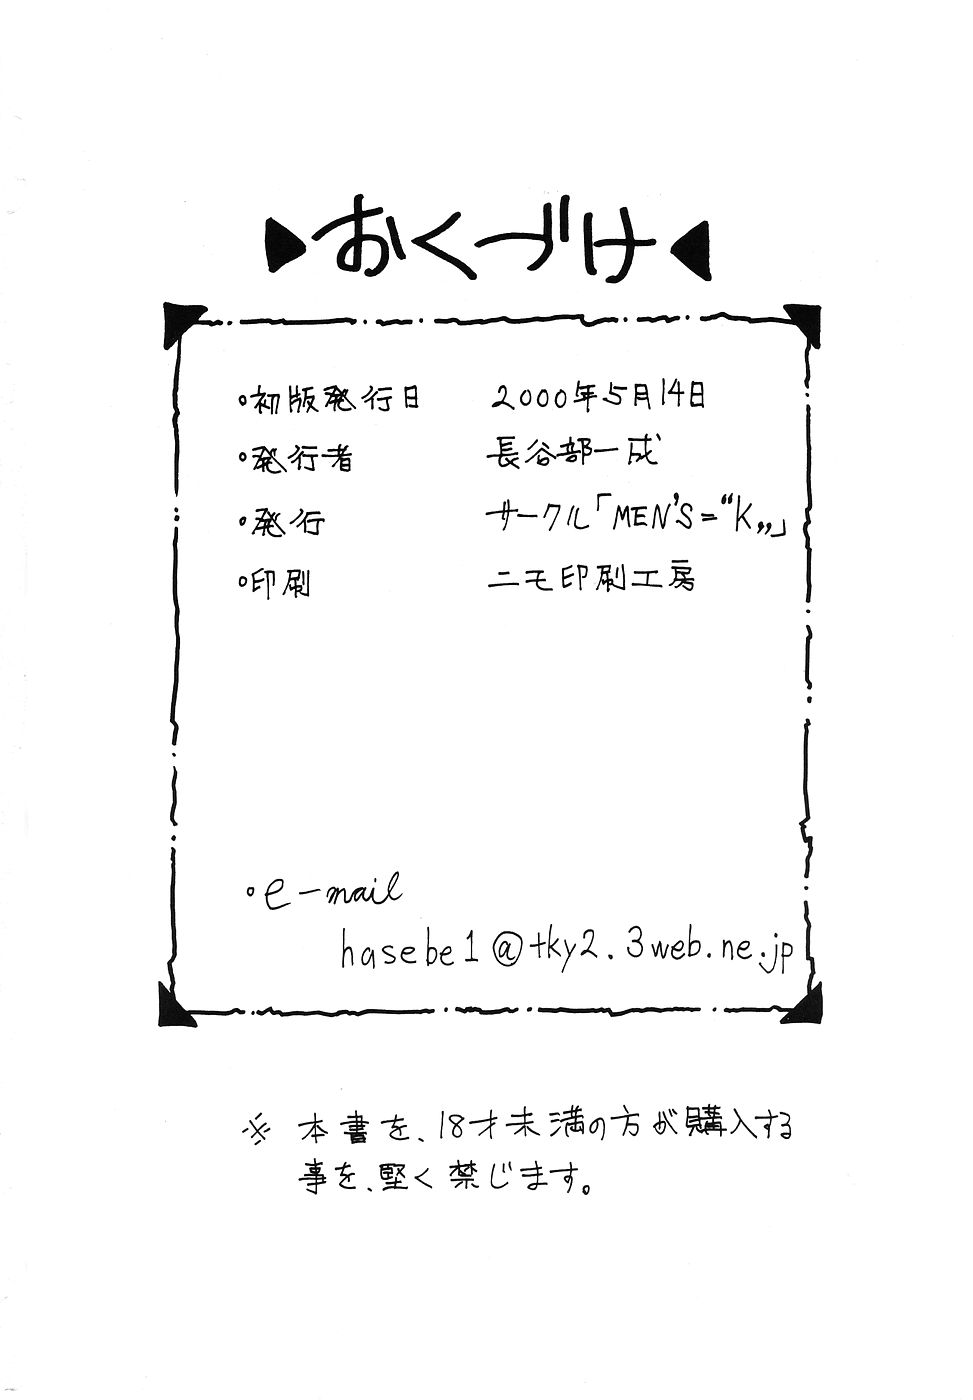 ▶おくづけ◀
・初版発行日 2000年5月14日
・発行者 長谷部一成
・発行 サークル「MEN'S=“K„」
・印刷 ニモ印刷工房
・e-mail
hasebe1@tky2.3web.ne.jp
※ 本書を、18才未満の方が購入する
事を、堅く禁じます。